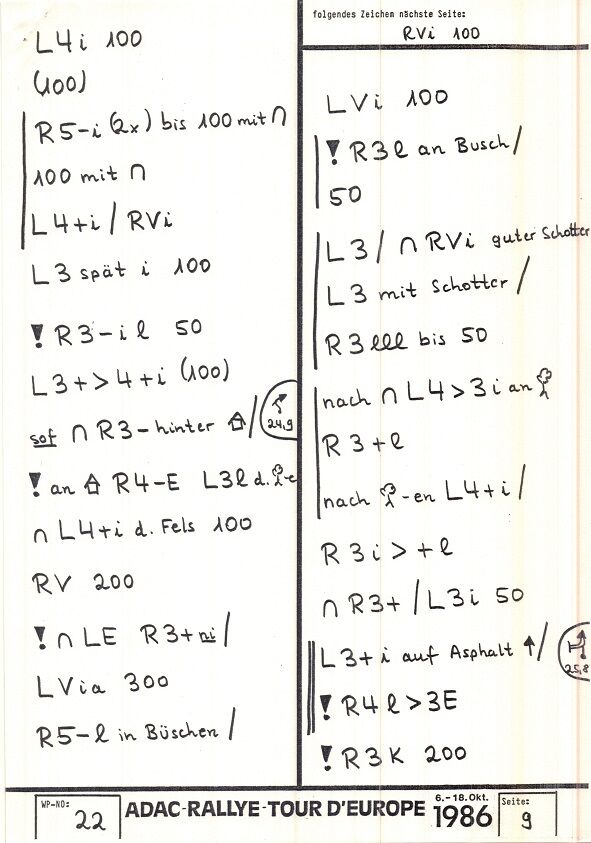 L4i 100
(100)
R5-i (2x) bis 100 mit ∩
100 mit ∩
L4+i / RVi
L3 spät i 100
! R3-i l 50
L3+>4+i (100)
sof ∩ R3- hinter ⌂ /
24,9
! an ⌂ R4-E L3l d.
∩ L4+i d. Fels 100
RV 200
! ∩ LE R3+ni /
LVia 300
R5-l in Büschen /
folgendes Zeichen nächste Seite:
RVi 100
LVi 100
! R3l an Busch /
50
L3 / ∩ RVi guter Schotter
L3 mit Schotter /
R3lll bis 50
nach ∩ L4>3i an
R3+l
nach -en L4+i /
R3i>+l
∩ R3+ / L3i 50
L3+i auf Asphalt ↑ /
25,8
! R4l>3E
! R3K 200
WP-NO: 22
ADAC-RALLYE-TOUR D'EUROPE
6.-18.Okt. 1986
Seite: 9